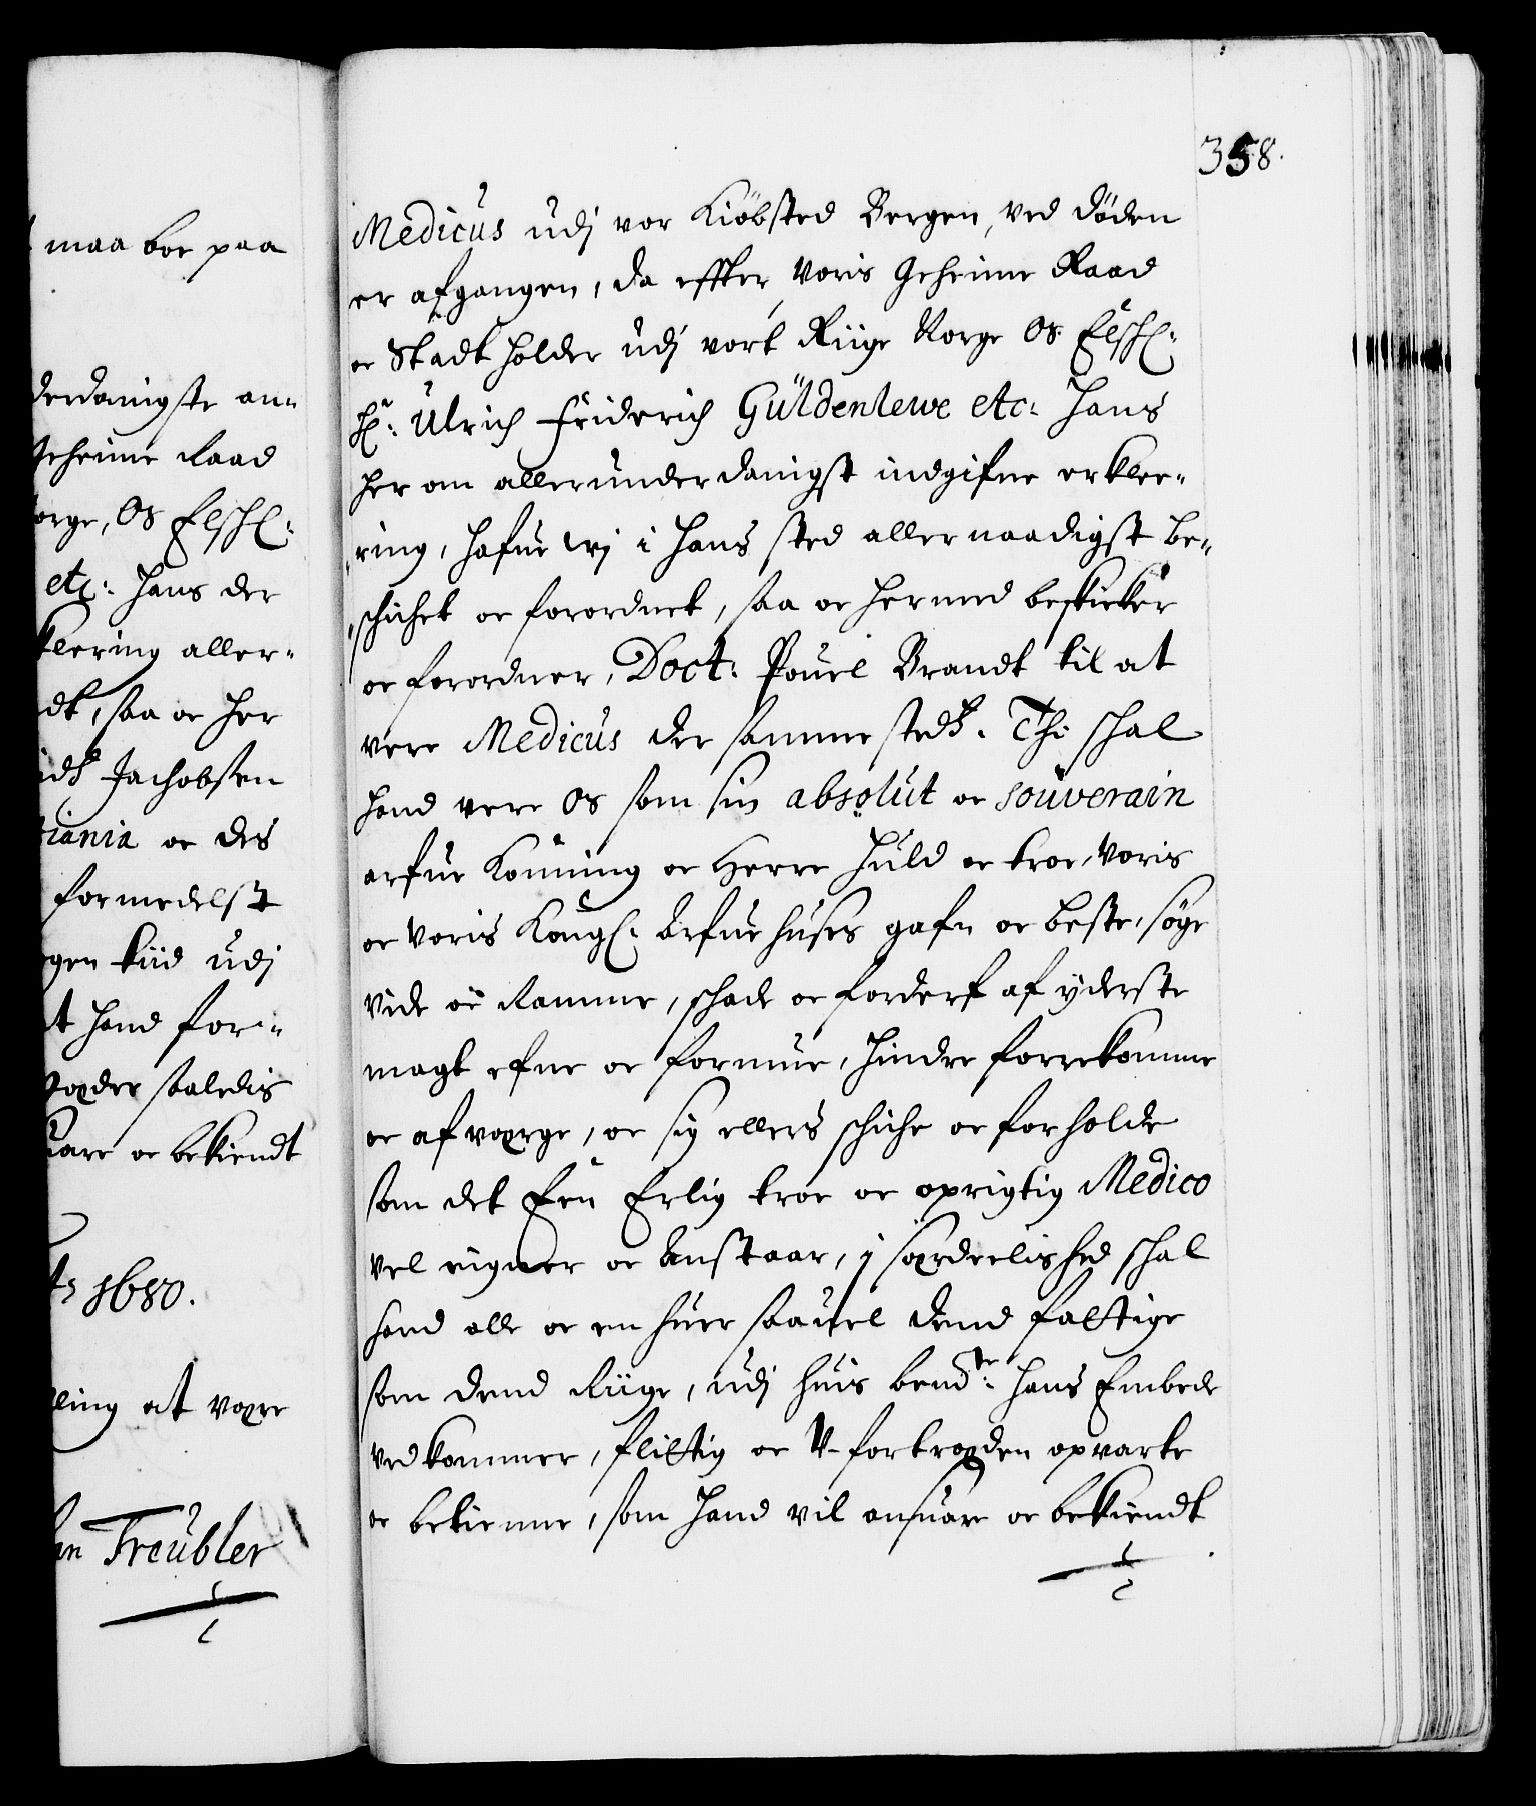 maa boe paa
derdanigste an-
Geheime Raad
orge, Os Elschl:
etc: hans der
klering aller-
dt, saa oc her
idt Jachobsen
iania oc des
formedelst
gen tiid udj
t hand for-
woxder saaledis
uare oc bekiendt
1680.
ling at voxre
an Treubler
358.
Medicus udj vor Kiöbsted Bergen, ved döden
er afgangen, da effter voris Geheime Raad
oc Stadtholder udj vort Riige Norge Os Elschl:
Hr: Ulrich Friderich Güldenlewe etc: hans
her om allerunderdanigst indgifne erklee-
ring, hafue wj i hans sted allernaadigst be-
schichet oc forordnet, saa oc hermed beskicker
oc forordner, Doct: Pouel Brandt til at
vere Medicus der sammestedt. Thi schal
hand vere Os som sin absolut oc souverain
arfue Konning oc Herre huld oc troe, voris
oc voris Kongl: Arfue huses gafn oc beste, söge
vide oc ramme, schade oc forderf af yderste
magt efne oc formue, hindre forrekomme
oc afvoxrge, oc sig ellers schiche oc forholde
som det Een Erlig troe oc oprigtig Medico
vel eigner oc Anstaar, j soxrdeelished schal
hand alle oc en huer saauel dend fattige
som dend Riige, udj huis bemdte: hans Embede
vedkommer, flittig oc U-fortroxden opvarte
oc betienne, som hand vil ansuare oc bekiendt